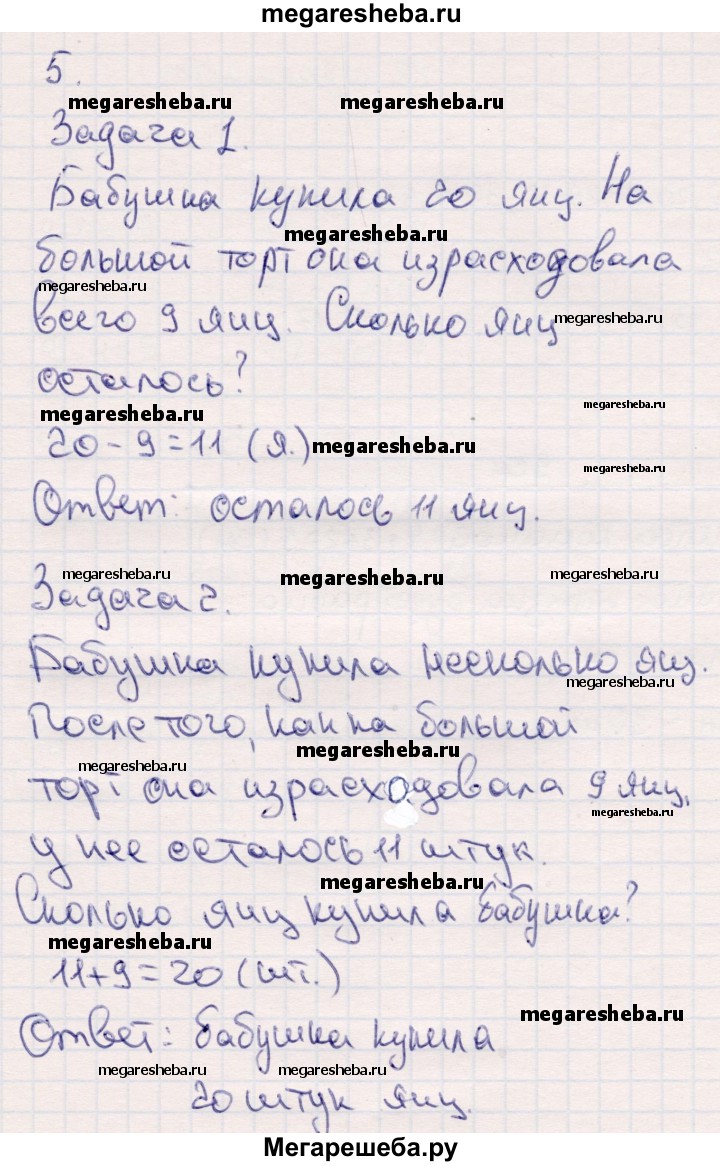 megaresheba.ru
5.
megaresheba.ru megaresheba.ru
Задача 1.
Бабушка купила 20 яиц. На
megaresheba.ru
большой торт она израсходовала
megaresheba.ru
всего 9 яиц. Сколько яиц
megaresheba.ru
осталось?
megaresheba.ru megaresheba.ru
20 - 9 = 11 (я.)
megaresheba.ru
megaresheba.ru
Ответ: осталось 11 яиц.
megaresheba.ru megaresheba.ru megaresheba.ru
Задача 2.
Бабушка купила несколько яиц.
megaresheba.ru
После того, как на большой
megaresheba.ru
megaresheba.ru
торт она израсходовала 9 яиц,
megaresheba.ru
у нее осталось 11 штук.
megaresheba.ru
Сколько яиц купила бабушка?
megaresheba.ru
11+9=20 (шт.)
megaresheba.ru
Ответ: бабушка купила
megaresheba.ru megaresheba.ru
20 штук яиц.
Мегарешеба.ру